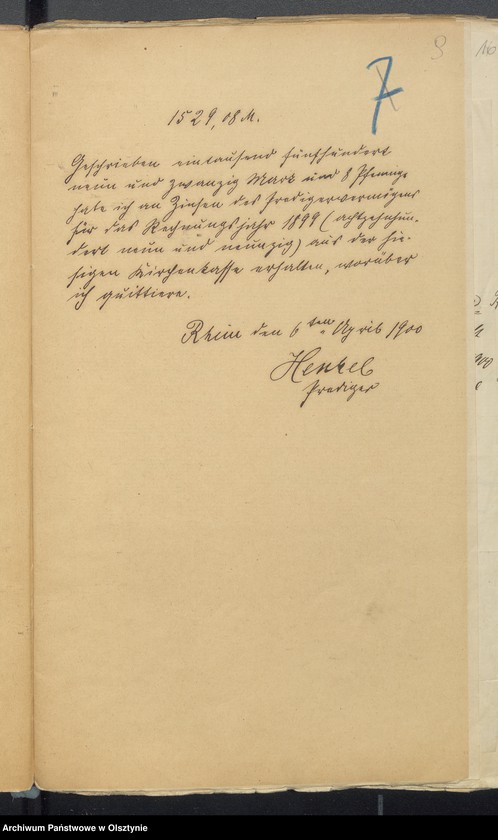 9
10
7
1529,08 M.
Geschrieben eintausend fünfhundert
neun und zwanzig Mark und 8 Pfennige
habe ich an Zinsen des Predigervermögens
für das Rechnungsjahr 1899 (achtzehnhun-
dert neun und neunzig) aus der hie-
sigen Kirchenkasse erhalten, worüber
ich quittiere.
Rhein den 6ten April 1900
Henkel
Prediger
Archiwum Państwowe w Olsztynie